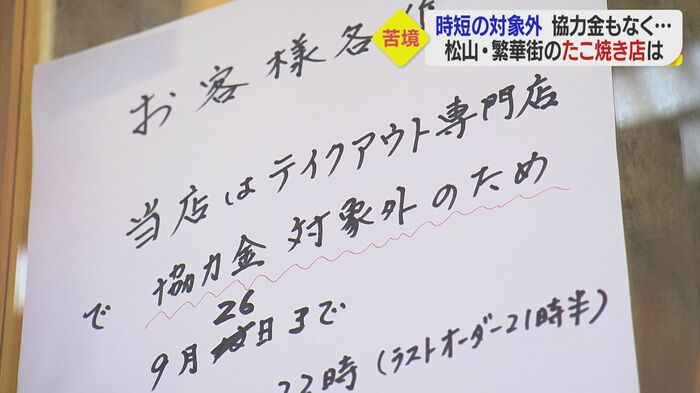 苦境
時短の対象外 協力金もなく…
松山・繁華街のたこ焼き店は
お客様各位
当店はテイクアウト専門店
で 協力金 対象外のため
26
9月 日まで
22時(ラストオーダー21時半)